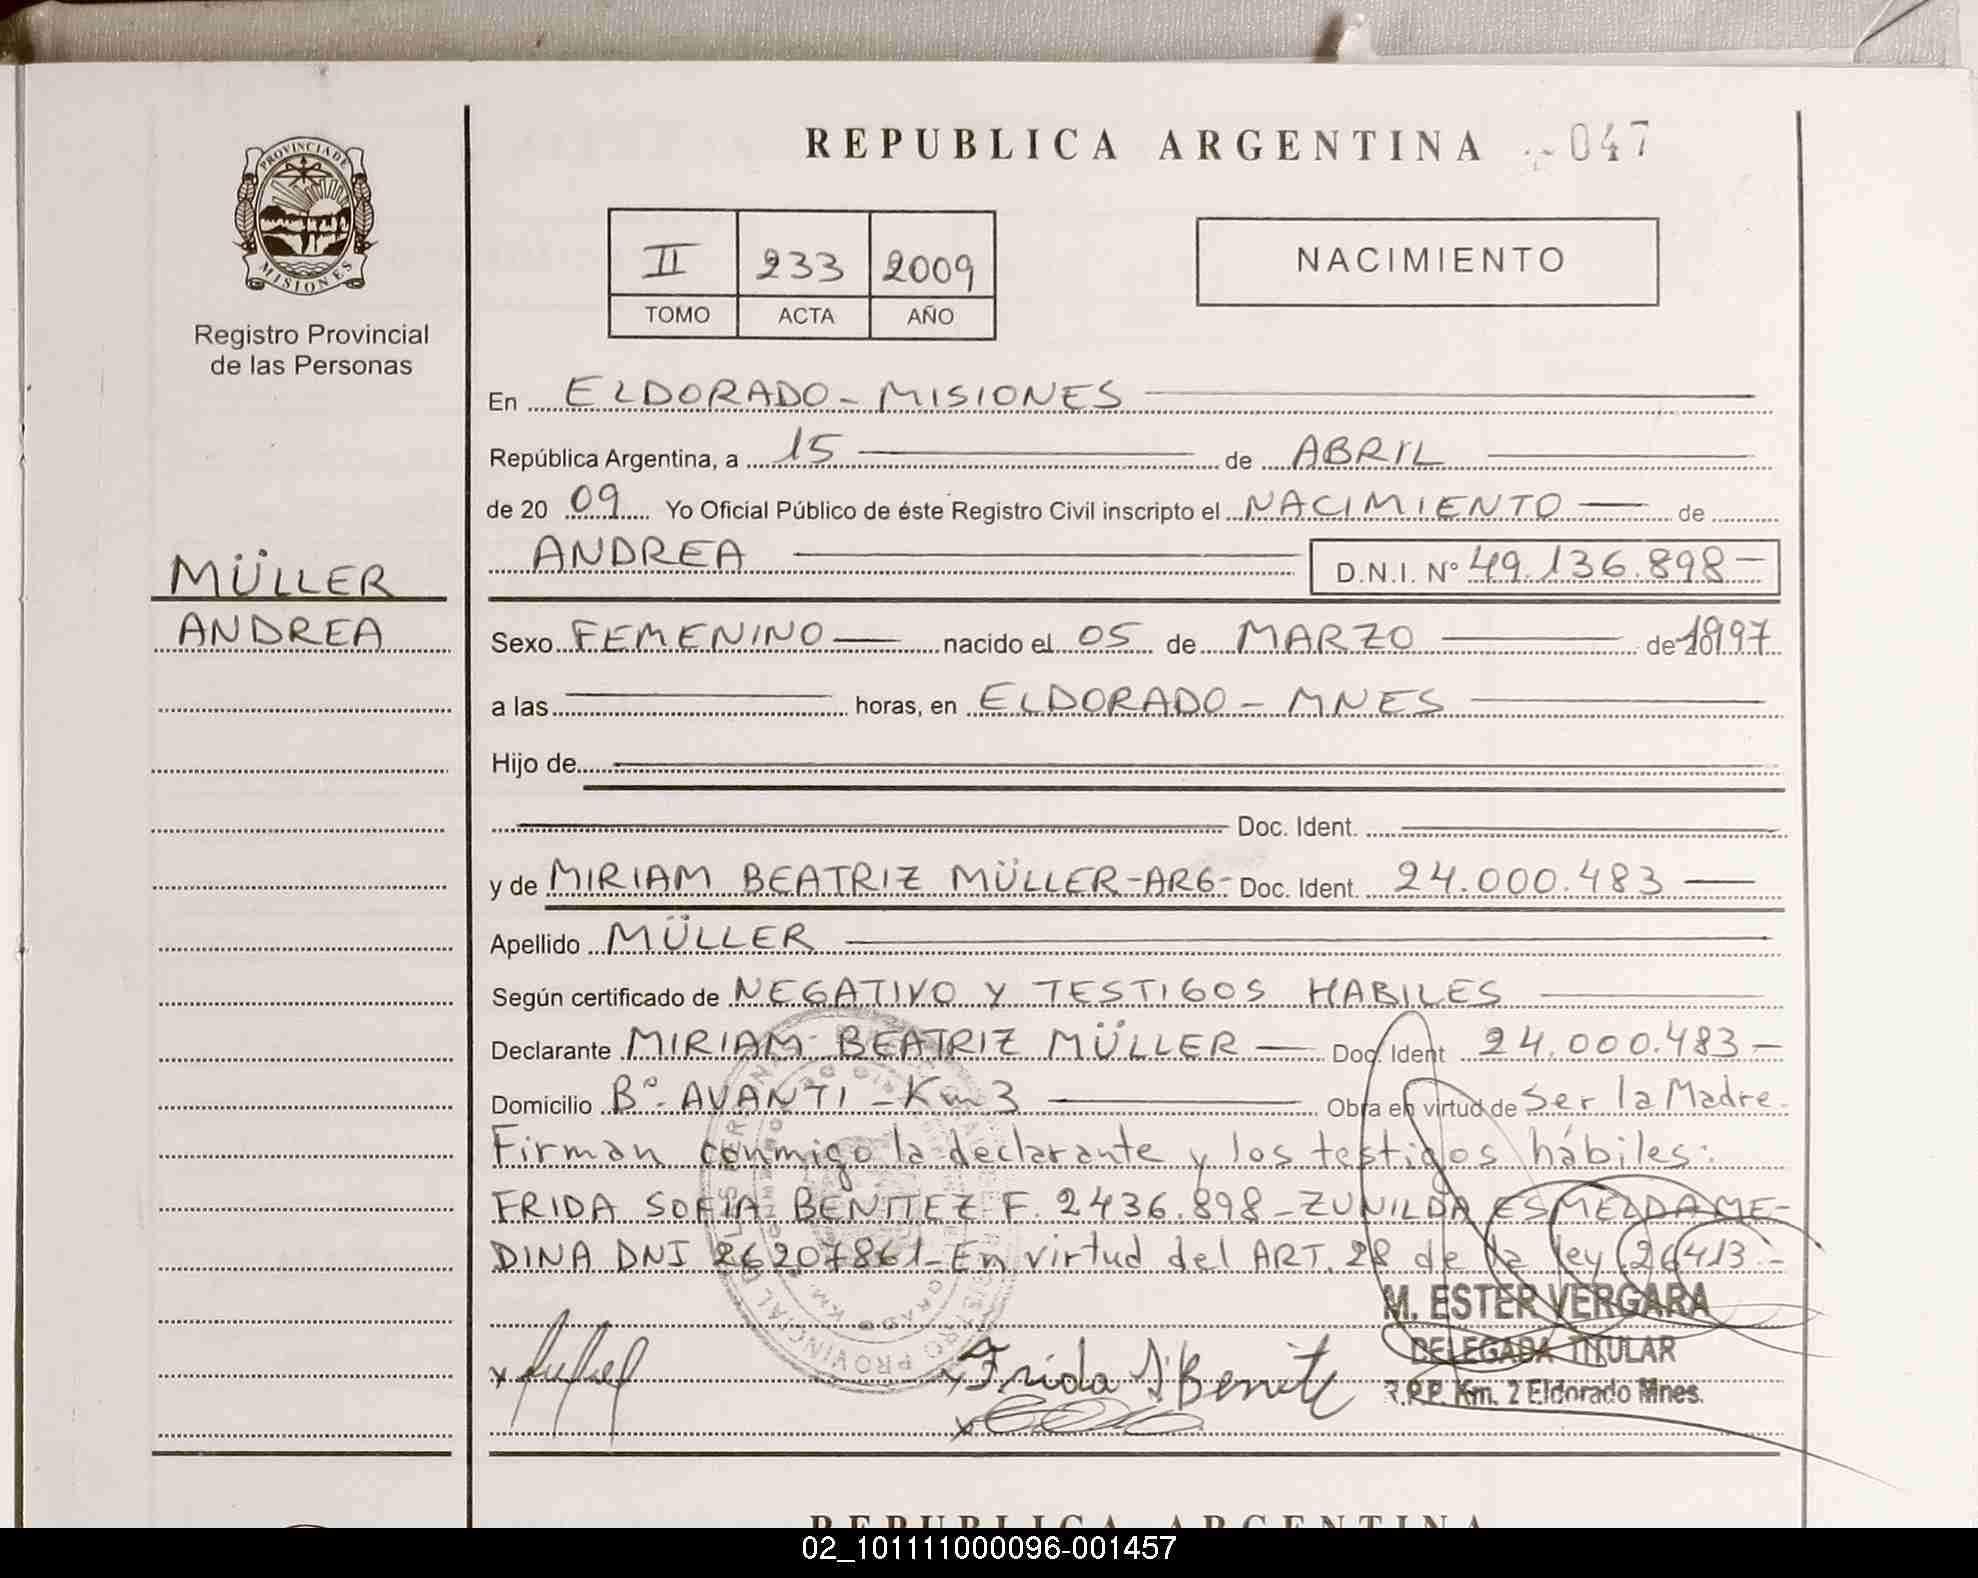 REPUBLICA ARGENTINA 047
PROVINCIA DE
MISIONES
Registro Provincial
de las Personas
II 233 2009
TOMO ACTA AÑO
NACIMIENTO
MÜLLER
ANDREA
En ELDORADO - MISIONES
República Argentina, a 15 de ABRIL
de 20 09 Yo Oficial Público de éste Registro Civil inscripto el NACIMIENTO de
ANDREA D.N.I. N° 49.136.898-
Sexo FEMENINO nacido el 05 de MARZO de 1997
a las horas, en ELDORADO - MNES
Hijo de
Doc. Ident.
y de MIRIAM BEATRIZ MÜLLER-ARG- Doc. Ident. 24.000.483
Apellido MÜLLER
Según certificado de NEGATIVO Y TESTIGOS HABILES
Declarante MIRIAM BEATRIZ MÜLLER Doc. Ident 24.000.483
Domicilio B°. AVANTI - Km 3 Obra en virtud de Ser la Madre.
Firman conmigo la declarante y los testigos hábiles:
FRIDA SOFIA BENITEZ F. 2436.898 - ZUNILDA ESMELDA ME-
DINA DNI 26207861 - En virtud del ART. 28 de la ley 26413.-
M. ESTER VERGARA
DELEGADA TITULAR
R.P.P. Km. 2 Eldorado Mnes.
x
x Frida S Benitez
x
REPUBLICA ARGENTINA
02_101111000096-001457